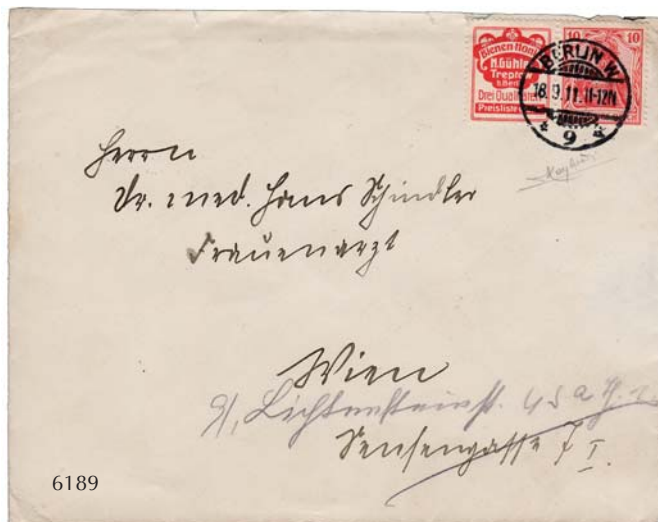 Bienen-Honig
H. Gühler
Treptow
b. Berlin
Drei Qualitäten
Preisliste
10 10
BERLIN W
18.9.11.11-12N
* 9 *
Herrn
Dr. med. Hans Schindler
Frauenarzt
Wien
9/, Lichtensteinst. 45a
Sensengasse 7 I.
6189